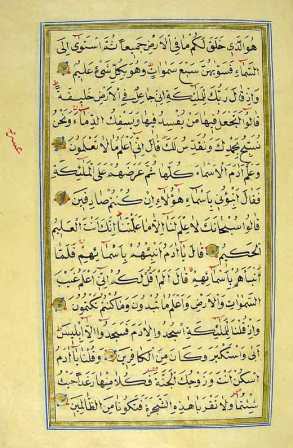 هو الذي خلق لكم ما في الارض جميعا ثم استوى الى
السماء فسويهن سبع سموات وهو بكل شيء عليم
واذ قال ربك للملئكة اني جاعل في الارض خليفة
قالوا اتجعل فيها من يفسد فيها ويسفك الدماء ونحن
نسبح بحمدك ونقدس لك قال اني اعلم ما لا تعلمون
وعلم ادم الاسماء كلها ثم عرضهم على الملئكة
فقال انبئوني باسماء هؤلاء ان كنتم صادقين
قالوا سبحانك لا علم لنا الا ما علمتنا انك انت العليم
الحكيم قال يا ادم انبئهم باسمائهم فلما
انباهم باسمائهم قال الم اقل لكم اني اعلم غيب
السموات والارض واعلم ما تبدون وما كنتم تكتمون
واذ قلنا للملئكة اسجدوا لادم فسجدوا الا ابليس
ابى واستكبر وكان من الكافرين وقلنا يا ادم
اسكن انت وزوجك الجنة وكلا منها رغدا حيث
شئتما ولا تقربا هذه الشجرة فتكونا من الظالمين